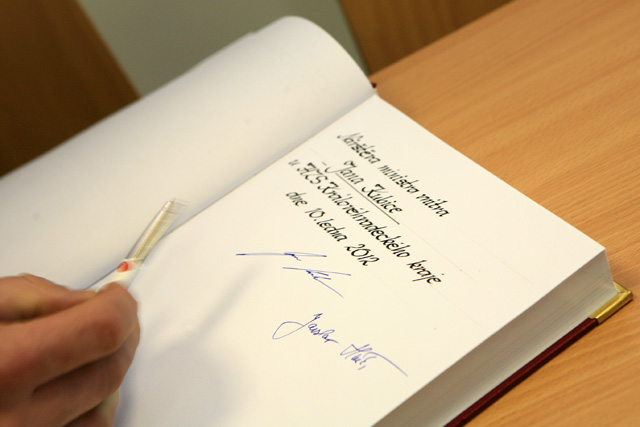 Návštěva ministra vnitra
Jana Kubice
u HZS Královéhradeckého kraje
dne 10. ledna 2012
Jaroslav